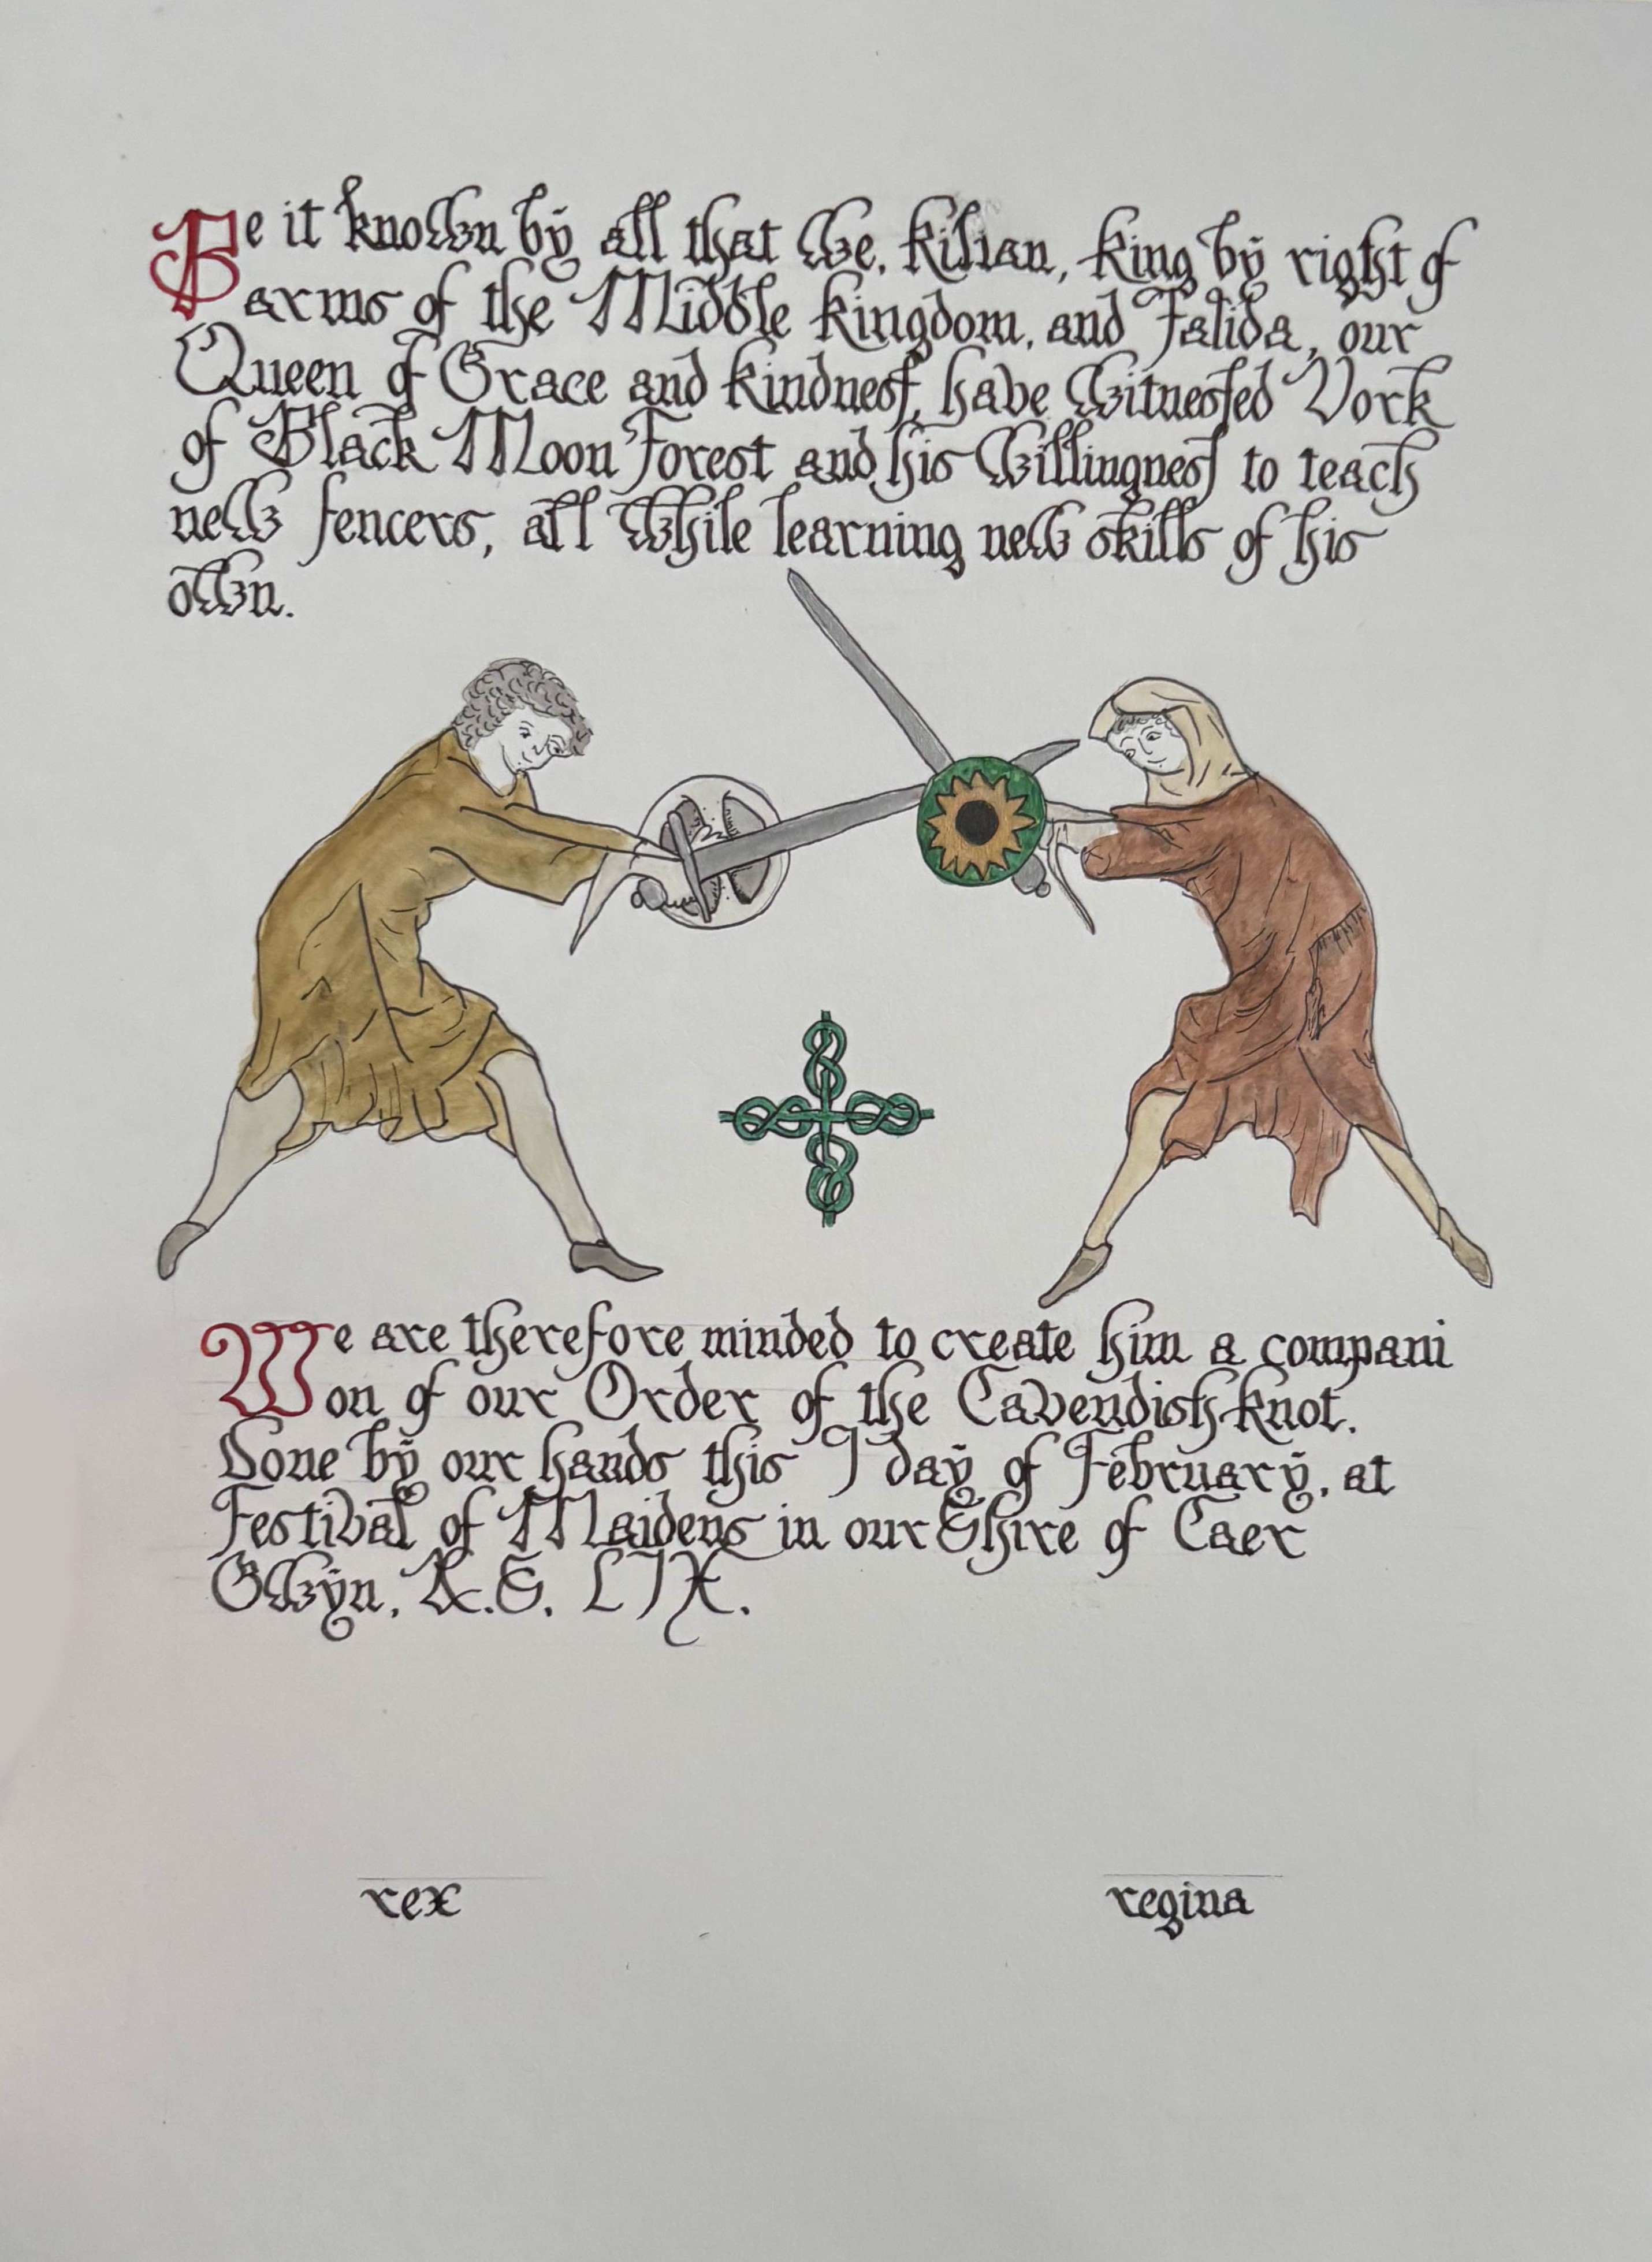 Be it known by all that We, Kilian, King by right of
arms of the Middle Kingdom, and Talida, our
Queen of Grace and kindness, have Witnessed Vork
of Black Moon Forest and his Willingness to teach
new fencers, all While learning new skills of his
own.
We are therefore minded to create him a compani
on of our Order of the Cavendish Knot.
Done by our hands this 9 day of February, at
Festival of Maidens in our Shire of Caer
Gwyn, A.S. LIX.
rex
regina